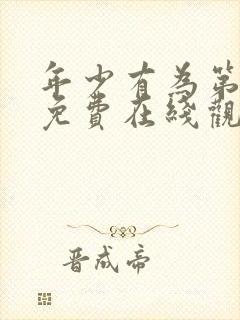 年少有為第
免費在綫觀
晋成帝